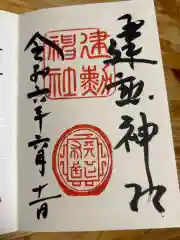 建勲神社
建勲
神社
令和六年六月十一日